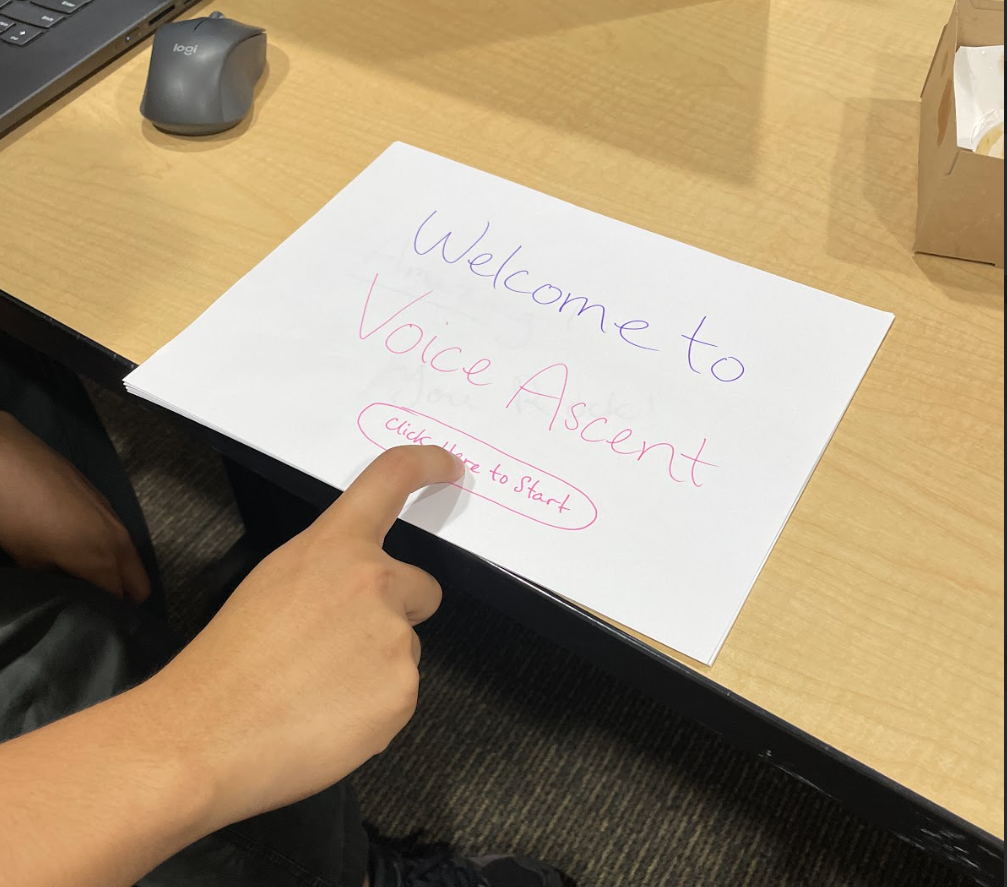 logi
Welcome to
Voice Ascent
Click Here to Start